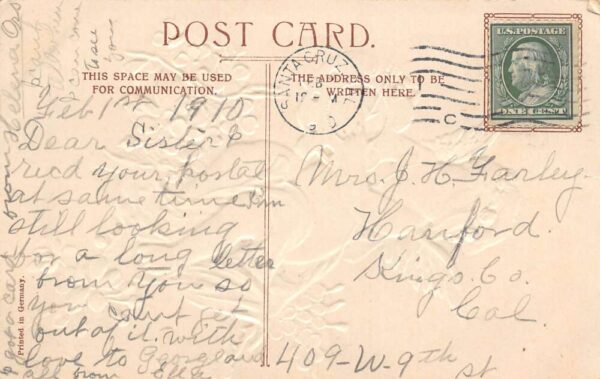 POST CARD.
THIS SPACE MAY BE USED
FOR COMMUNICATION.
THE ADDRESS ONLY TO BE
WRITTEN HERE.
SANTA CRUZ
U.S. POSTAGE
ONE CENT
Feb 1st 1910
Dear Sister
recd your postal
at same time. I'm
still looking
for a long letter
from you so
you can't get
out of it, with
love to George and
all from Ella
Mrs. J. H. Farley.
Hanford.
Kings. Co.
Cal.
409-W-9th
st
Printed in Germany.
got a card from